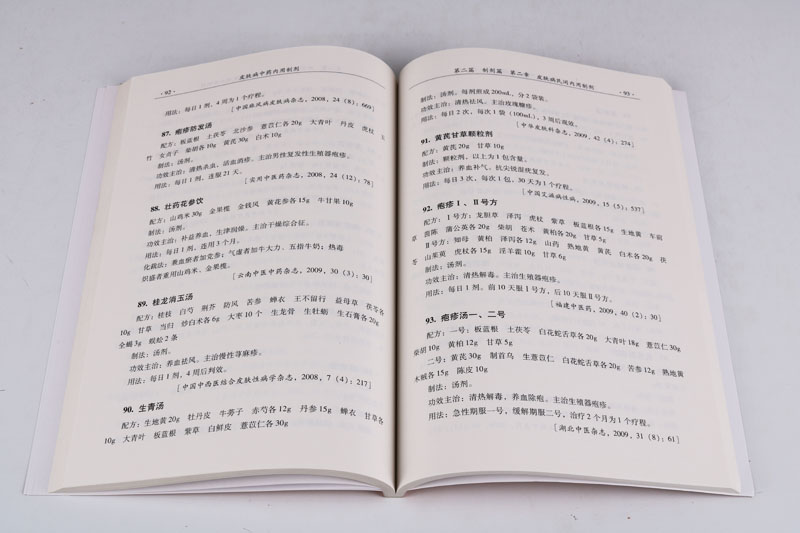 · 92 ·
皮肤病中药内用制剂
用法：每日 1 剂，4 周为 1 个疗程。
[中国麻风病皮肤病杂志，2008，24（8）：669]
87. 疱疹防发汤
配方：板蓝根　土茯苓　北沙参　薏苡仁各20g　大青叶　丹皮　虎杖　玉
竹　女贞子　柴胡各10g　黄芪30g　白术10g
制法：汤剂。
功效主治：清热杀虫，活血消疹。主治男性复发性生殖器疱疹。
用法：每日 1 剂，连服 21 天。
[实用中医药杂志，2008，24（12）：78]
88. 壮药花参饮
配方：山鸡米30g　金果榄　金钱风　黄花参各15g　牛甘果10g
制法：汤剂。
功效主治：补益养血，生津润燥。主治干燥综合征。
用法：每日 1 剂，连用 3 个月。
化裁法：兼血瘀者加党参；气虚者加牛大力、五指牛奶；热毒
炽盛者重用山鸡米、金果榄。
[云南中医中药杂志，2009，30（3）：30]
89. 桂龙消玉汤
配方：桂枝　白芍　荆芥　防风　苦参　蝉衣　王不留行　益母草　茯苓各
10g　甘草　当归　炒白术各6g　大枣10个　生龙骨　生牡蛎　生石膏各20g
全蝎3g　蜈蚣2条
制法：汤剂。
功效主治：养血祛风。主治慢性荨麻疹。
用法：每日 1 剂，4 周后判效。
[中国中西医结合皮肤性病学杂志，2008，7（4）：217]
90. 生青汤
配方：生地黄20g　牡丹皮　牛蒡子　赤芍各12g　丹参15g　蝉衣　甘草各
10g　大青叶　板蓝根　紫草　白鲜皮　薏苡仁各30g
第二篇　制剂篇　第二章　皮肤病民间内用制剂
· 93 ·
制法：汤剂。每剂煎成200mL，分 2 袋装。
功效主治：清热祛风。主治玫瑰糠疹。
用法：每日 2 次，每次 1 袋（100mL），3 周后观效。
[中华皮肤科杂志，2009，42（4）：274]
91. 黄芪甘草颗粒剂
配方：黄芪20g　甘草10g
制法：颗粒剂。以上为 1 包含量。
功效主治：养血补气。抗尖锐湿疣复发。
用法：每日 3 次，每次 1 包，30 天为 1 个疗程。
[中国艾滋病性病，2009，15（5）：537]
92. 疱疹Ⅰ、Ⅱ号方
配方：Ⅰ号方：龙胆草　泽泻　虎杖　紫草　板蓝根各15g　生地黄　车前
草　茵陈　蒲公英各20g　柴胡　苍术　黄柏各20g　甘草5g
Ⅱ号方：知母　黄柏　泽泻各12g　山药　熟地黄　黄芪　白术各20g　茯
苓　山茱萸　虎杖各15g　淫羊藿10g　甘草6g
制法：汤剂。
功效主治：清热解毒。主治生殖器疱疹。
用法：每日 1 剂。前 10 天服Ⅰ号方，后 10 天服Ⅱ号方。
[福建中医药，2009，40（2）：30]
93. 疱疹汤一、二号
配方：一号：板蓝根　土茯苓　白花蛇舌草各20g　大青叶18g　薏苡仁30g
柴胡10g　黄柏12g　甘草5g
二号：黄芪30g　制首乌　生薏苡仁　白花蛇舌草各20g　苦参12g　熟地黄
木贼各15g　陈皮10g
制法：汤剂。
功效主治：清热解毒，养血除疱。主治生殖器疱疹。
用法：急性期服一号，缓解期服二号，治疗 2 个月为 1 个疗程。
[湖北中医杂志，2009，31（8）：61]